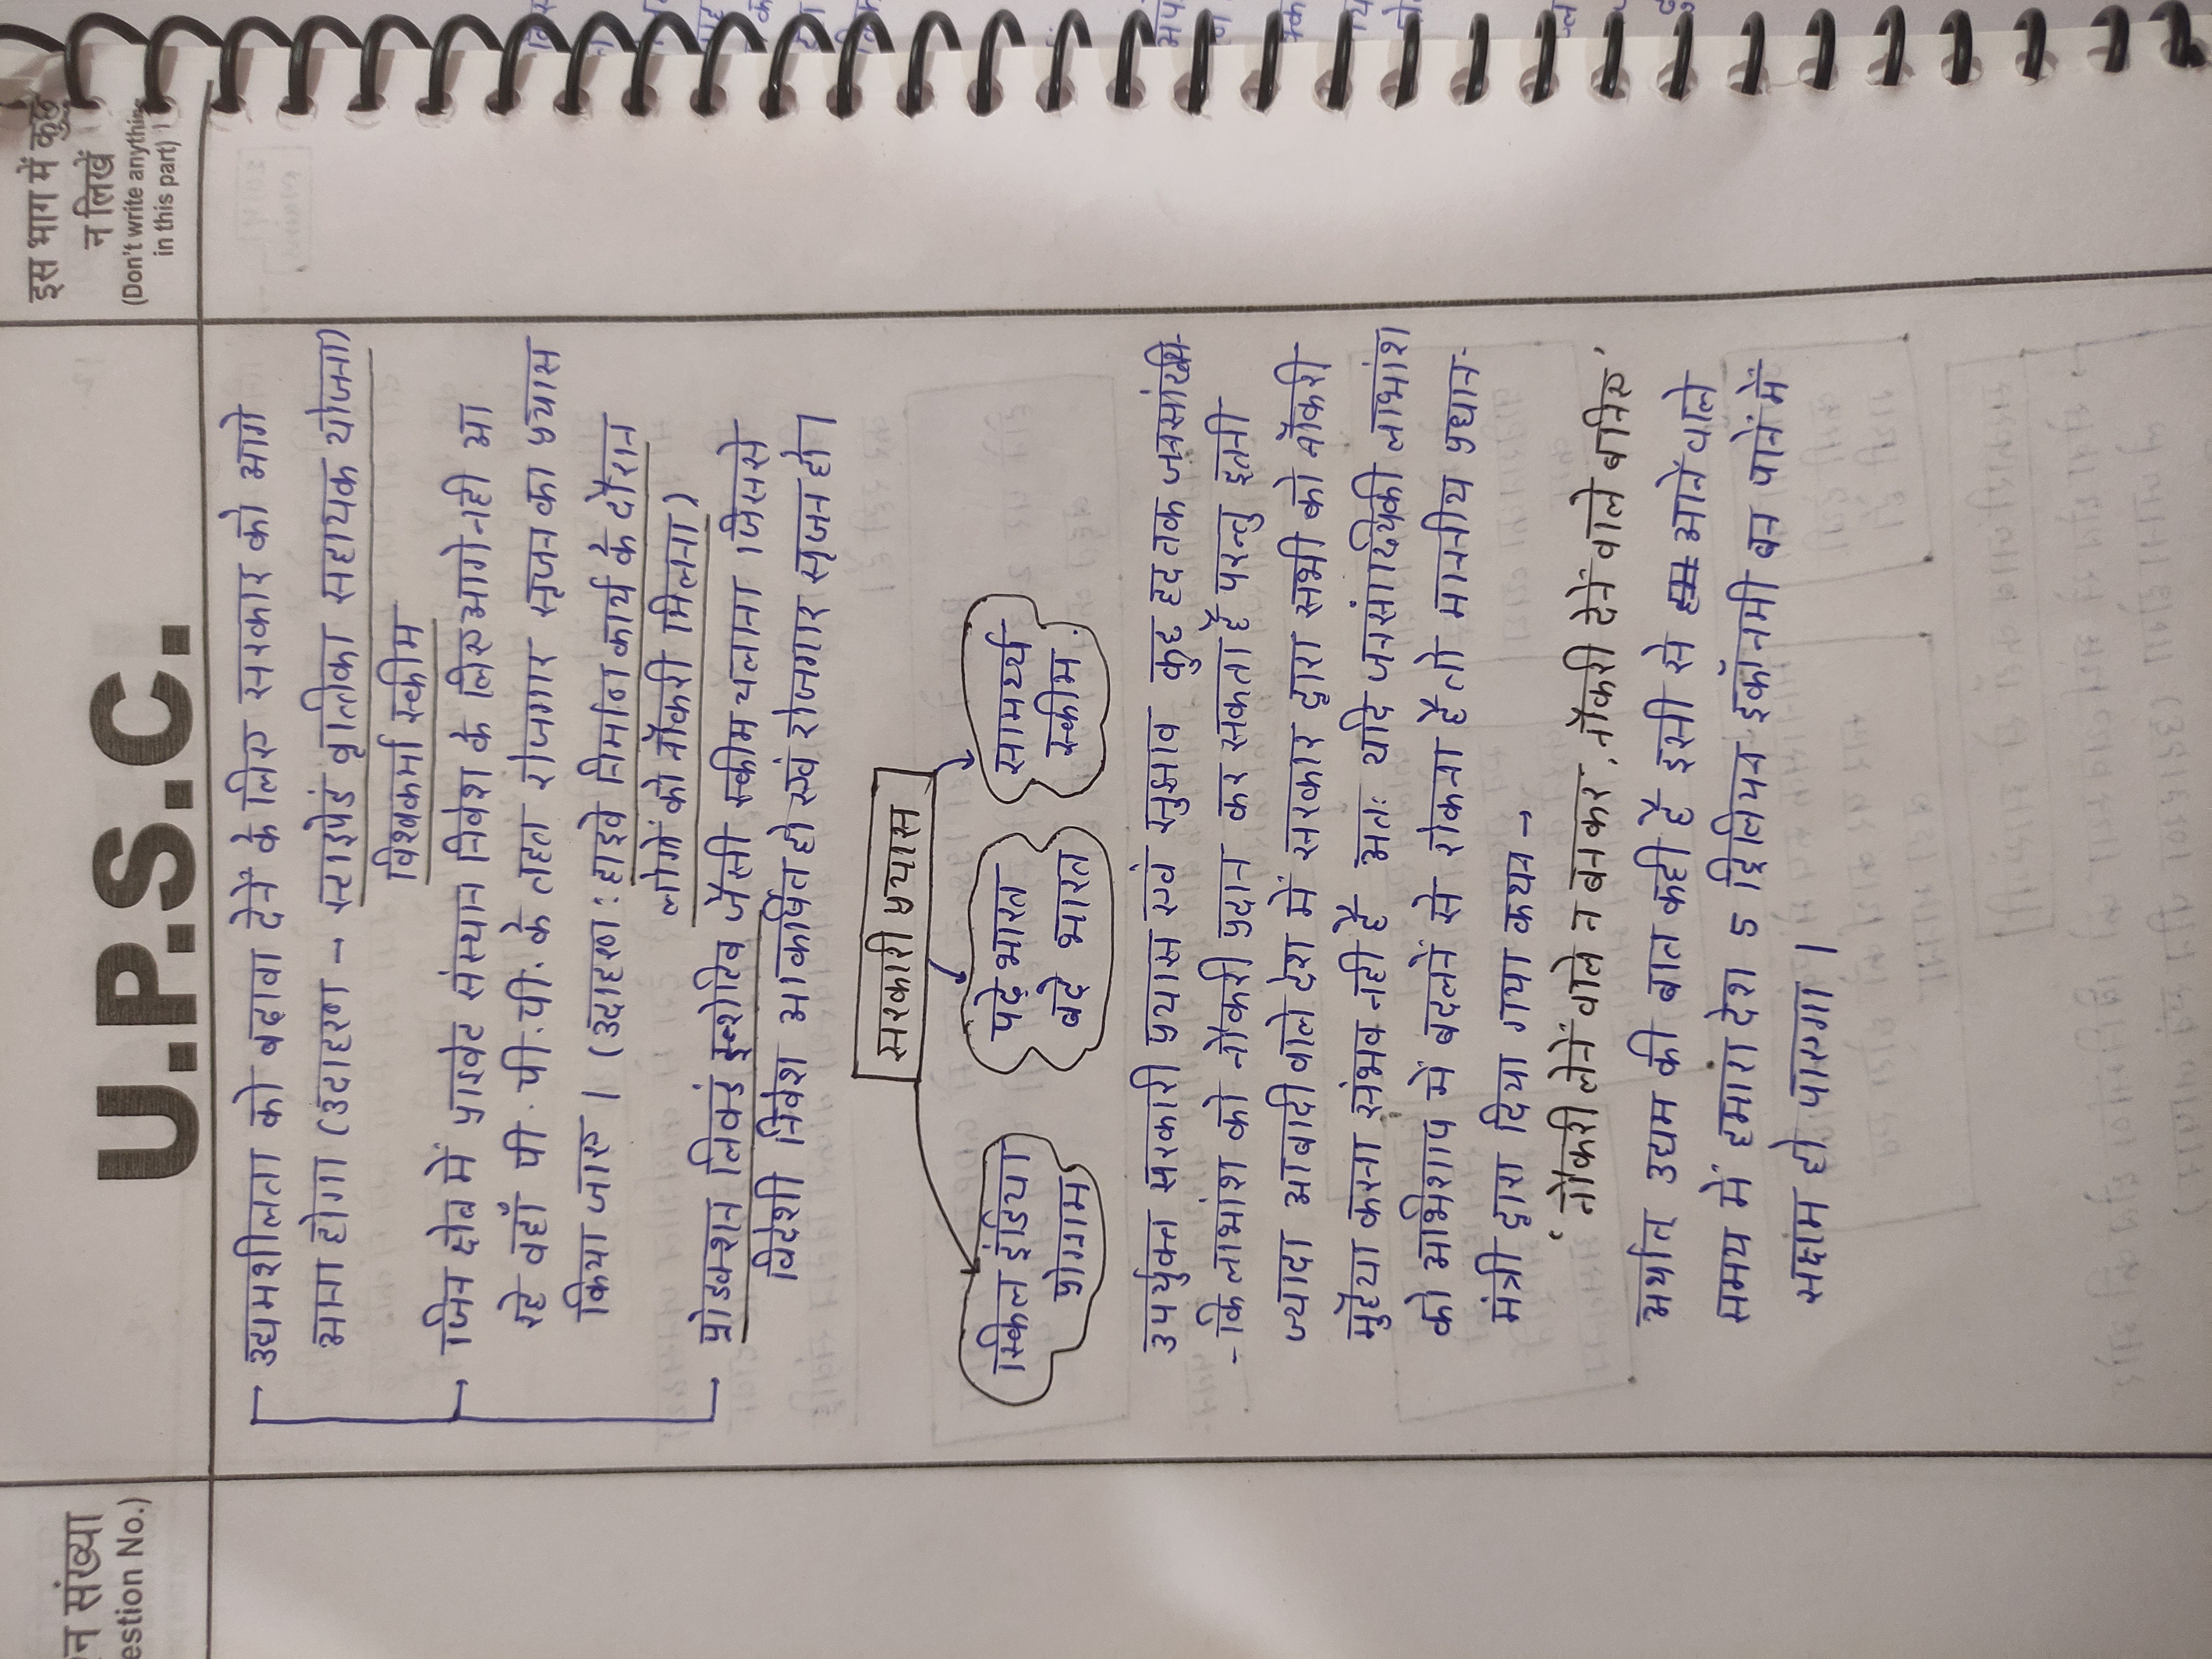 U.P.S.C.
इस भाग में कुछ
न लिखें
(Don't write anything
in this part)
न संख्या
estion No.)
उद्यमशीलता को बढ़ावा देनें के लिए सरकार को आगे
आना होगा (उदाहरण → स्टाइपेंड वृतिका सहायक योजना)
विश्वकर्मा स्कीम
जिन क्षेत्र में प्राइवेट संस्थान निवेश के लिए आगे नही आ
रहे वहाँ पी.पी.पी. के तहत रोजगार सृजन का प्रयास
किया जाए। (उदाहरण: हाइवे निर्माण कार्य के दौरान
लोगों को नौकरी मिलना)
प्रोडक्शन लिंक्ड इन्शेटिव जैसी स्कीम चलाना जिससे
विदेशी निवेश आकर्षित हो एवं रोजगार सृजन हो।
सरकारी प्रयास
स्किल इंडिया
प्रोग्राम
पढ़े भारत
बढ़े भारत
सामर्थ्य
स्कीम
उपर्युक्त सरकारी प्रयास एवं सुझाव कुछ हद तक जनसांख्यि-
-कि लाभांश को नौकरी प्रदान कर सकता है परन्तु इतनी
ज्यादा आबादी वाले देश में सरकार द्वारा सभी को नौकरी
मुहैया करना संभव नही है अतः यदि जनसांख्यिकी लाभांश
को अभिशाप में बदलनें से रोकना है तो माननीय प्रधान-
मंत्री द्वारा दिया गया कथन →
' नौकरी लेनें वाले न बनकर, नौकरी देनें वाले बनिए '
अर्थात् उद्यम की बात कही है इसी से आनें वाले
समय में हमारा देश 5 ट्रिलियन इकॉनमी बन पानें में
सक्षम हो पाएगा।